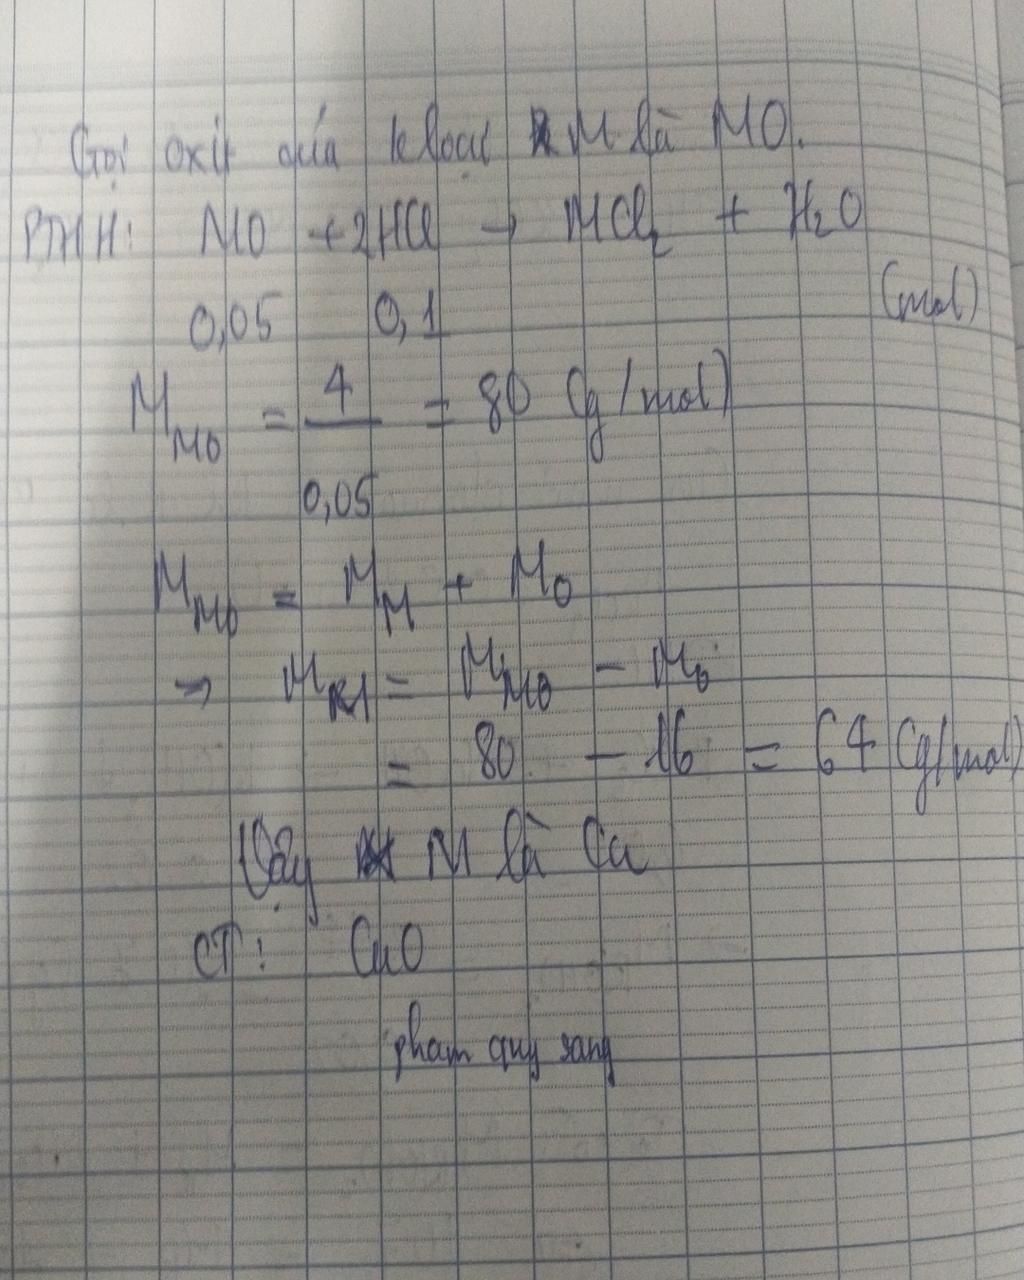 Gọi oxit của kloại M là MO.
PTHH: MO + 2HCl → MCl₂ + H₂O
0,05 0,1 (mol)
M_MO = 4 / 0,05 = 80 (g/mol)
M_MO = M_M + M_O
→ M_M = M_MO - M_O
= 80 - 16 = 64 (g/mol)
Vậy M là Cu
CT: CuO
pham quy sang